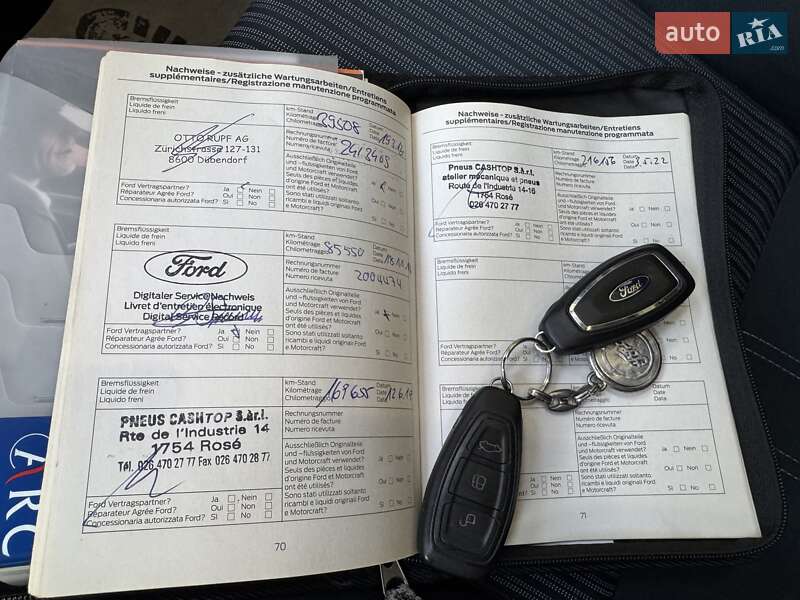 auto RIA
.com
Nachweise - zusätzliche Wartungsarbeiten/Entretiens
supplémentaires/Registrazione manutenzione programmata
Bremsflüssigkeit
Liquide de frein
Liquido freni
OTTO RUPF AG
Zürichstrasse 127-131
8600 Dübendorf
Ford Vertragspartner? Ja Nein
Réparateur Agrée Ford? Oui Non
Concessionaria autorizzata Ford? Si No
km-Stand
Kilométrage
Chilometraggio
29508
Datum
Date
Data
Rechnungsnummer
Numéro de facture
Numero ricevuta
2412465
Ausschließlich Originalteile
und -flüssigkeiten von Ford
und Motorcraft verwendet? Ja Nein
Seuls des pièces et liquides
d'origine Ford et Motorcraft
ont été utilisés? Oui Non
Sono stati utilizzati soltanto
ricambi e liquidi originali Ford
e Motorcraft? Si No
Bremsflüssigkeit
Liquide de frein
Liquido freni
Ford
Digitaler Service Nachweis
Livret d'entretien électronique
Digital Service
Ford Vertragspartner? Ja Nein
Réparateur Agrée Ford? Oui Non
Concessionaria autorizzata Ford? Si No
km-Stand
Kilométrage
Chilometraggio
85550
Datum
Date
Data
Rechnungsnummer
Numéro de facture
Numero ricevuta
2004474
Ausschließlich Originalteile
und -flüssigkeiten von Ford
und Motorcraft verwendet? Ja Nein
Seuls des pièces et liquides
d'origine Ford et Motorcraft
ont été utilisés? Oui Non
Sono stati utilizzati soltanto
ricambi e liquidi originali Ford
e Motorcraft? Si No
Bremsflüssigkeit
Liquide de frein
Liquido freni
PNEUS CASHTOP S.àr.l.
Rte de l'Industrie 14
1754 Rosé
Tél. 026 470 27 77 Fax 026 470 28 77
Ford Vertragspartner? Ja Nein
Réparateur Agrée Ford? Oui Non
Concessionaria autorizzata Ford? Si No
km-Stand
Kilométrage
Chilometraggio
169655
Datum
Date
Data
12.6.17
Rechnungsnummer
Numéro de facture
Numero ricevuta
Ausschließlich Originalteile
und -flüssigkeiten von Ford
und Motorcraft verwendet? Ja Nein
Seuls des pièces et liquides
d'origine Ford et Motorcraft
ont été utilisés? Oui Non
Sono stati utilizzati soltanto
ricambi e liquidi originali Ford
e Motorcraft? Si No
70
Nachweise - zusätzliche Wartungsarbeiten/Entretiens
supplémentaires/Registrazione manutenzione programmata
Bremsflüssigkeit
Liquide de frein
Liquido freni
Pneus CASHTOP S.àr.l.
atelier mécanique et pneus
Route de l'Industrie 14-16
1754 Rosé
026 470 27 77
Ford Vertragspartner? Ja Nein
Réparateur Agrée Ford? Oui Non
Concessionaria autorizzata Ford? Si No
km-Stand
Kilométrage
Chilometraggio
216156
Datum
Date
Data
3.5.22
Rechnungsnummer
Numéro de facture
Numero ricevuta
Ausschließlich Originalteile
und -flüssigkeiten von Ford
und Motorcraft verwendet? Ja Nein
Seuls des pièces et liquides
d'origine Ford et Motorcraft
ont été utilisés? Oui Non
Sono stati utilizzati soltanto
ricambi e liquidi originali Ford
e Motorcraft? Si No
Bremsflüssigkeit
Liquide de frein
Liquido freni
Ford
Datum
Date
Data
Rechnungsnummer
Numéro de facture
Numero ricevuta
Ausschließlich Originalteile
und -flüssigkeiten von Ford
und Motorcraft verwendet? Ja Nein
Seuls des pièces et liquides
d'origine Ford et Motorcraft
ont été utilisés? Oui Non
Sono stati utilizzati soltanto
ricambi e liquidi originali Ford
e Motorcraft? Si No
71
ARC